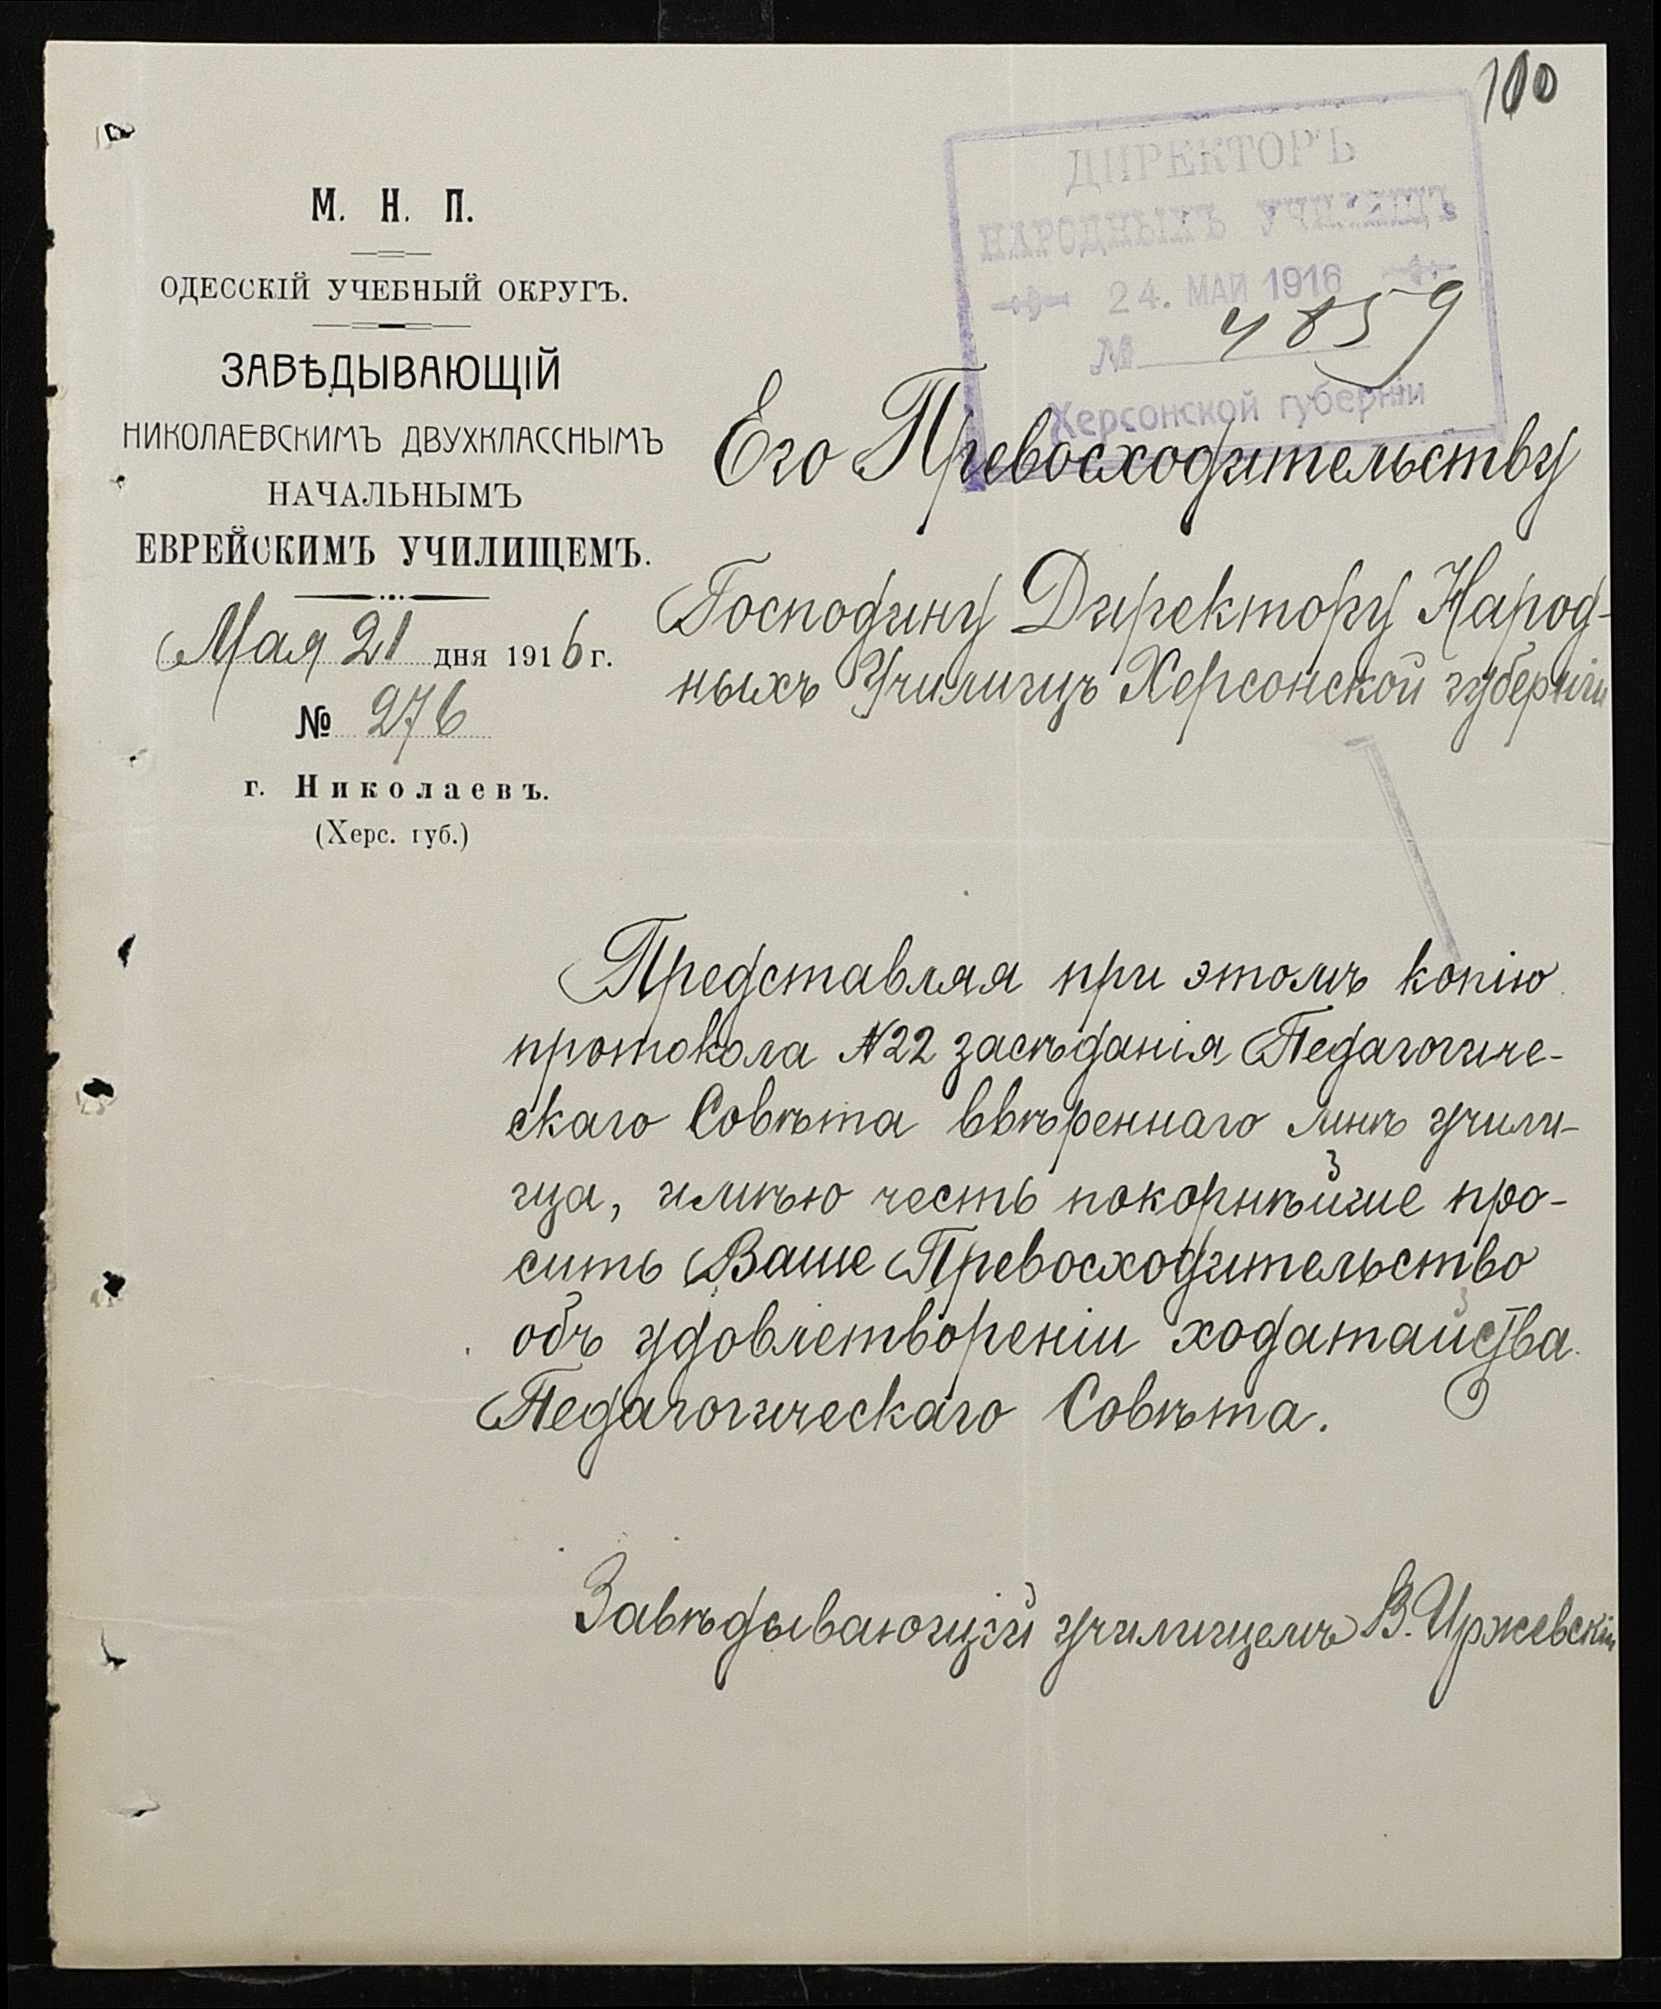 100
М. Н. П.
ОДЕССКІЙ УЧЕБНЫЙ ОКРУГЪ.
ЗАВѢДЫВАЮЩІЙ
НИКОЛАЕВСКИМЪ ДВУХКЛАССНЫМЪ
НАЧАЛЬНЫМЪ
ЕВРЕЙСКИМЪ УЧИЛИЩЕМЪ.
Мая 21 дня 1916 г.
№ 276
г. Николаевъ.
(Херс. губ.)
ДИРЕКТОРЪ
НАРОДНЫХЪ УЧИЛИЩЪ
24. МАЙ 1916
№ 4859
Херсонской губерніи
Его Превосходительству
Господину Директору Народ-
ныхъ Училищъ Херсонской губерніи
Представляя при этомъ копію
протокола №22 засѣданія Педагогиче-
скаго Совѣта ввѣреннаго мнѣ учили-
ща, имѣю честь покорнѣйше про-
сить Ваше Превосходительство
объ удовлетвореніи ходатайства
Педагогическаго Совѣта.
Завѣдывающій училищемъ В. Иржевскій